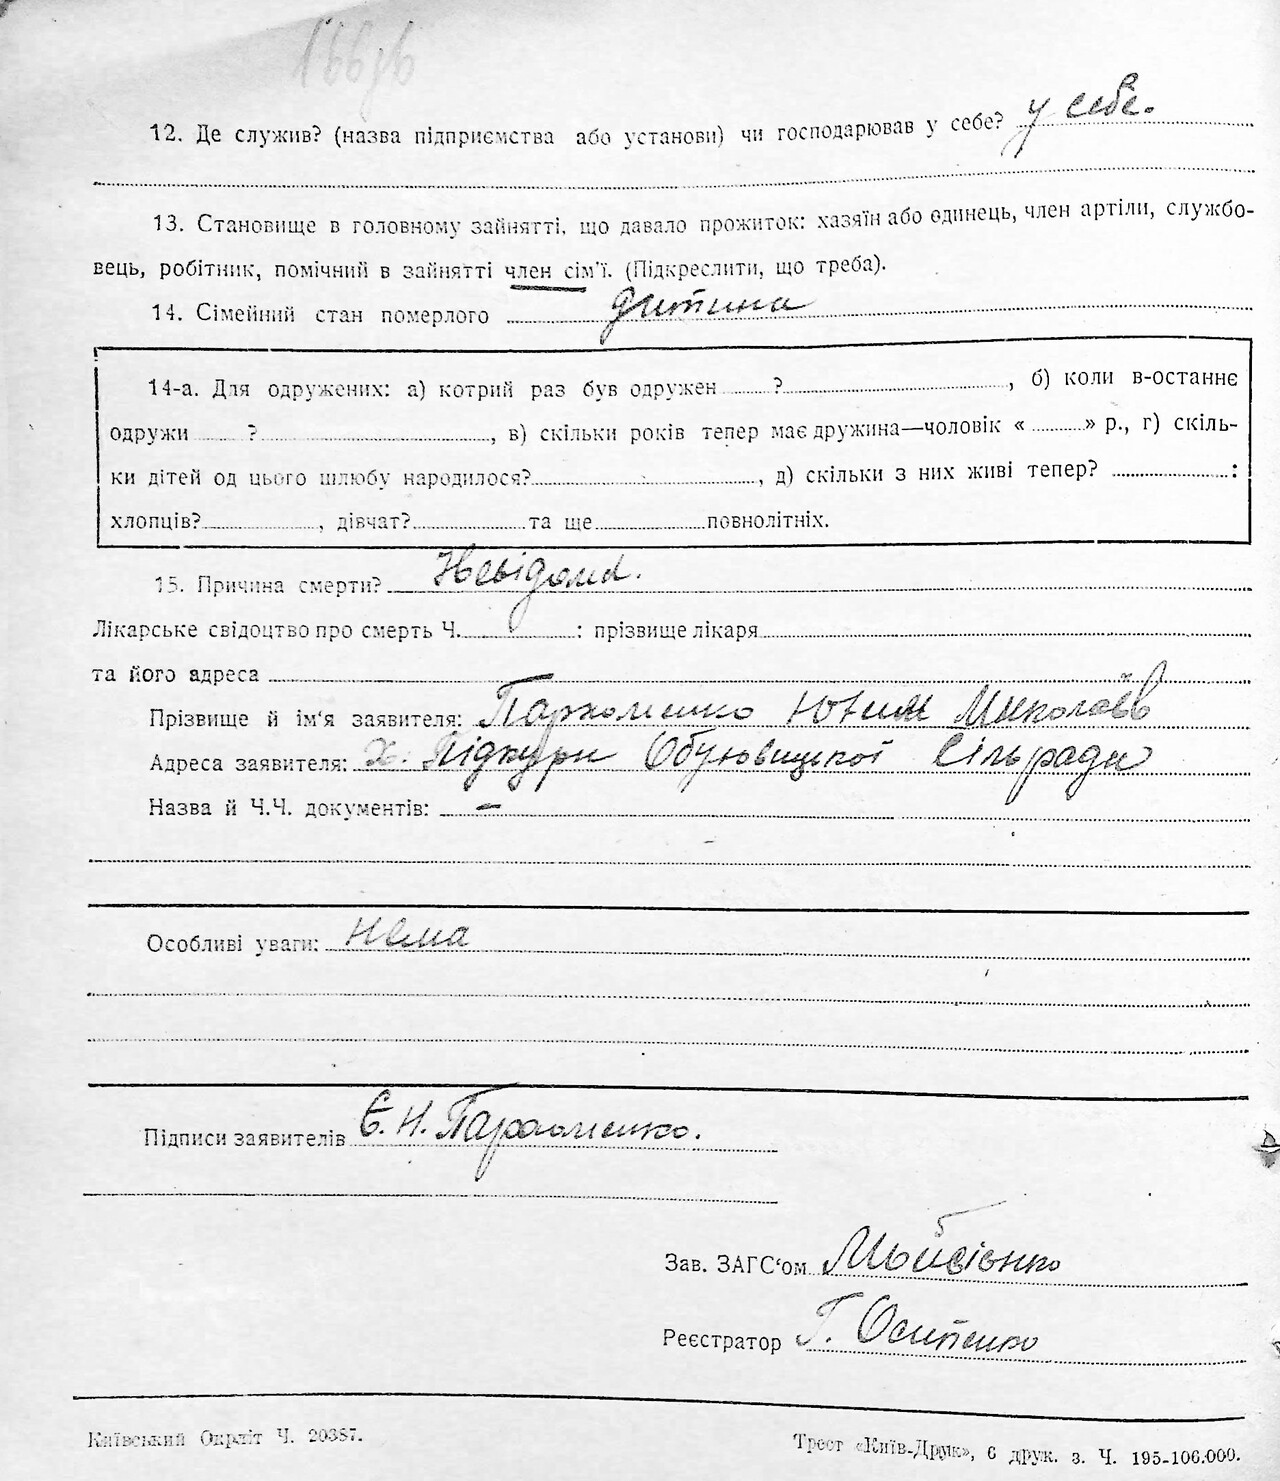 12. Де служив? (назва підприємства або установи) чи господарював у себе? у себе.
13. Становище в головному зайнятті, що давало прожиток: хазяїн або одинець, член артіли, службо-
вець, робітник, помічний в зайнятті член сім'ї. (Підкреслити, що треба).
14. Сімейний стан померлого дитина
14-а. Для одружених: а) котрий раз був одружен ? , б) коли в-останнє
одружи ? , в) скільки років тепер має дружина—чоловік « » р., г) скіль-
ки дітей од цього шлюбу народилося? , д) скільки з них живі тепер? :
хлопців? , дівчат? та ще повнолітніх.
15. Причина смерти? Невідома.
Лікарське свідоцтво про смерть Ч. : прізвище лікаря
та його адреса
Прізвище й ім'я заявителя: Пархоменко Юхим Миколаїв
Адреса заявителя: х. Підкури Обуховицької Сільради
Назва й Ч.Ч. документів: —
Особливі уваги: Нема
Підписи заявителів Є. Н. Пархоменко.
Зав. ЗАГС'ом Мойсієнко
Реєстратор Г. Осипенко
Київський Окрліт Ч. 20387.
Трест «Київ-Друк», 6 друк. з. Ч. 195-106.000.